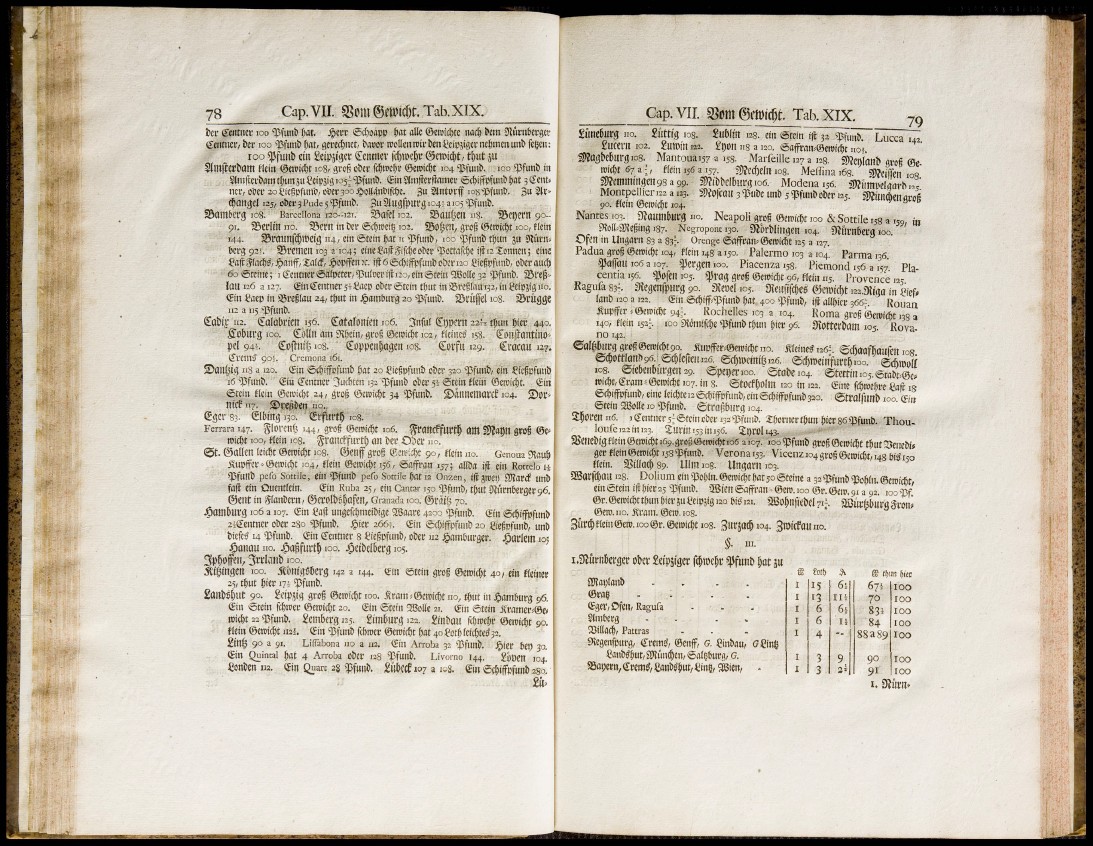 78 Cap. VII. Vom Gewicht. Tab. XIX.
der Centner 100 Pfund hat. Herr Schoapp hat alle Gewichte nach dem Nürnberger
Centner, der 100 Pfund hat, gerechnet, davor wollen wir den Leipziger nehmen und setzen:
100 Pfund ein Leipziger Centner schwehr Gewicht, thut zu
Amsterdam klein Gewicht 108, groß oder schwehr Gewicht 104 Pfund. 100 Pfund in
Amsterdam thum zu Leipzig 105½ Pfund. Ein Amsterdamer Schiffpfund hat 3 Cent-
ner, oder 20 Ließpfund, oder 300 Holländische. Zu Antorff 108 Pfund. Zu Ar-
changel 125, oder 3 Pude 5 Pfund. Zu Augspurg 104½ a 105 Pfund.
Bamberg 108. Barcellona 120-121. Basel 102. Bautzen 118. Beyern 90-
91. Berlin 110. Bern in der Schweitz 102. Botzen, groß Gewicht 100, klein
144. Braunschweig 114, ein Stein hat 11 Pfund, 100 Pfund thun zu Nürn-
berg 92½. Bremen 103 a 104; eine Last Fische oder Pottasche ist 12 Tonnen; eine
Last Flachs, Hanff, Talck, Hopffen 2c. ist 6 Schiffpfund oder 120 Ließpfund, oder auch
60 Steine; 1 Centner Salpeter, Pulver ist 120, ein Stein Wolle 32 Pfund. Breß-
lau 126 a 127. Ein Centner 5½ Laep oder Stein thut in Breßlau 132, in Leipzig 110.
Ein Laep in Breßlau 24, thut in Hamburg 20 Pfund. Brüssel 108. Brügge
112 a 115 Pfund.
Cadix 112. Calabrien 156. Catalonien 106. Insul Cypern 22½ thun hier 440.
Coburg 100. Cölln am Rhein, groß Gewicht 102, kleines 158. Constantino-
pel 94½. Costnitz 108. Coppenhagen 108. Corfu 129. Cracau 127.
Crems 90½. Cremona 161.
Dantzig 118 a 120. Ein Schiffpfund hat 20 Ließpfund oder 320 Pfund, ein Ließpfund
16 Pfund. Ein Centner Juchten 132 Pfund oder 5½ Stein klein Gewicht. Ein
Stein klein Gewicht 24, groß Gewicht 34 Pfund. Dännemarck 104. Dor-
nick 117. Dreßden 110.
Eger 83. Elbing 130. Erfurth 108.
Ferrara 147. Florentz 144, groß Gewicht 106. Franckfurth am Mayn groß Ge-
wicht 100, klein 108. Franckfurth an der Oder 110.
St. Gallen leicht Gewicht 108. Genff groß Gewicht 90, klein 110. Genoua Rauh
Kupffer-Gewicht 104, klein Gewicht 156, Saffran 157; allda ist ein Rottelo 1½
Pfund peso Sottile; ein Pfund peso Sottile hat 12 Onzen, ist zwey Marck und
fast ein Quentlein. Ein Ruba 25, ein Cantar 150 Pfund, thut Nürnberger 96.
Gent in Flandern, Geroldshafen, Granada 100. Gräitz 70.
Hamburg 106 a 107. Ein Last ungeschmeidige Waare 4200 Pfund. Ein Schiffpfund
2½ Centner oder 280 Pfund. Hier 266½. Ein Schiffpfund 20 Ließpfund, und
dieses 14 Pfund. Ein Centner 8 Ließpfund, oder 112 Hamburger. Harlem 105
Hanau 110. Haßfurth 100. Heidelberg 105.
Iphoffen, Irrland 100.
Kitzingen 100. Königsberg 142 a 144. Ein Stein groß Gewicht 40, ein kleiner
25, thut hier 17½ Pfund.
Landshut 90. Leipzig groß Gewicht 100. Kram-Gewicht 110, thut in Hamburg 96.
Ein Stein schwer Gewicht 20. Ein Stein Wolle 21. Ein Stein Kramer-Ge-
wicht 22 Pfund. Lemberg 125. Limburg 122. Lindau schwehr Gewicht 90.
klein Gewicht 112½. Ein Pfund schwer Gewicht hat 40 Loth leichtes 32.
Lintz 90 a 91. Lissabona 110 a 112. Ein Arroba 32 Pfund. Hier bey 30.
Ein Quintal hat 4 Arroba oder 128 Pfund. Livorno 144. Löven 104.
Londen 112. Ein Quart 28 Pfund. Lübeck 107 a 108. Ein Schiffpfund 280.
Lü-
Cap. VII. Vom Gewicht. Tab. XIX. 79
Lüneburg 110. Lüttig 108. Lublin 128. ein Stein ist 32 Pfund. Lucca 142.
Lucern 102. Luwin 122. Lyon 118 a 120. Saffran-Gewicht 110½.
Magdeburg 108. Mantoua 157 a 158. Marseille 127 a 128. Meyland groß Ge-
wicht 67 a ½, klein 156 a 157. Mecheln 108. Messina 168. Meissen 108.
Memmingen 98 a 99. Middelburg 106. Modena 156. Mümpelgard 125.
Montpellier 122 a 123. Moscau 3 Pude und 5 Pfund oder 125. München groß
90. klein Gewicht 104.
Nantes 103. Naumburg 110. Neapoli groß Gewicht 100 & Sottile 158 a 159, in
Roll-Meßing 187. Negropont 130. Nördlingen 104. Nürnberg 100.
Ofen in Ungarn 83 a 83½. Orenge Saffran-Gewicht 125 a 127.
Padua groß Gewicht 104, klein 148 a 150. Palermo 103 a 104. Parma 136.
Passau 106 a 107. Pergen 100. Piacenza 158. Piemond 156 a 157. Pla-
centia 156. Posen 105. Prag groß Gewicht 96, klein 115. Provence 125.
Ragusa 83½. Regenspurg 90. Revel 105. Reussisches Gewicht 122. Riga in Lief-
land 120 a 122. Ein Schiff-Pfund hat 400 Pfund, ist allhier 366½. Rouan
Kupffer-Gewicht 94½. Rochelles 103 a 104. Roma groß Gewicht 138 a
140, klein 152½. 100 Römische Pfund thun hier 96. Rotterdam 105. Rova-
no 142.
Saltzburg groß Gewicht 90. Kupffer-Gewicht 110. Kleines 126½. Schaafhausen 108.
Schottland 96. Schlesien 126. Schweinitz 126. Schweinfurth 100. Schwoll
108. Siebenbürgen 29. Speyer 100. Stade 104. Stettin 105. Stadt-Ge-
wicht, Cram-Gewicht 107. in 8. Stockholm 120 in 122. Eine schwehre Last 18
Schiffpfund, eine leichte 12 Schiffpfund, ein Schiffpfund 320. Stralsund 100. Ein
Stein Wolle 10 Pfund. Straßburg 104.
Thoren 116. 1 Centner 5½ Stein oder 132 Pfund. Thorner thun hier 86 Pfund. Thou-
louse 122 in 123. Turin 153 in 156. Tyrol 143.
Venedig klein Gewicht 169. groß Gewicht 106 a 107. 100 Pfund groß Gewicht thut Venedi-
ger klein Gewicht 158 Pfund. Verona 153. Vicenz 104 groß Gewicht, 148 bis 150
klein. Villach 89. Ulm 108. Ungarn 103.
Warschau 128. Dolium ein Pohln. Gewicht hat 50 Steine a 32 Pfund Pohln. Gewicht,
ein Stein ist hier 25 Pfund. Wien Saffran-Gew. 100 Gr. Gew. 91 a 92. 100 Pf.
Gr. Gewicht thun hier zu Leipzig 120 bis 121. Wohnsiedel 71½. Würtzburg Fron-
Gew. 110. Kram. Gew. 108.
Zürch klein Gew. 100 Gr. Gewicht 108. Zurzach 104. Zwickau 110.
§. III.
1. Nürnberger oder Leipziger schwehr Pfund hat zu
℔ Loth ℔ thun hier
Mayland - - - - 1 15 6½ 67½ 100
Gratz - - - - 1 13 11½ 70 100
Eger, Ofen, Ragusa - - - 1 6 6½ 83½ 100
Amberg - - - - 1 6 1½ 84 100
Villach, Pattras - - - 1 4 -- 88 a 89 100
Regenspurg, Crems, Genff, G. Lindau, G Lintz
Landshut, München, Saltzburg, G. 1 3 9 90 100
Bayern, Crems, Landshut, Lintz, Wien, - 1 3 2½ 91 100
1. Nürn-